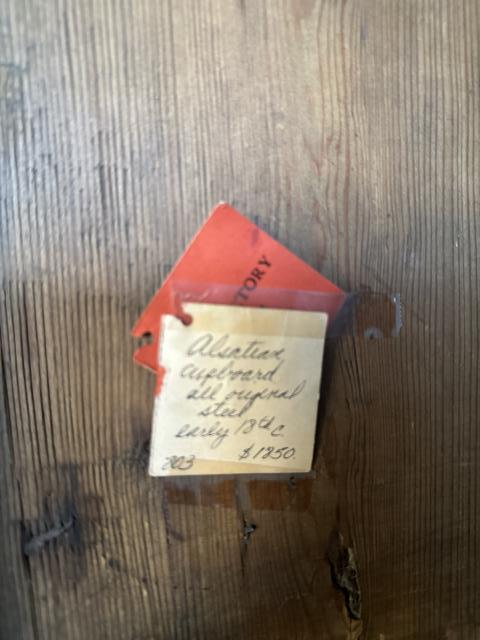 TORY
Alsatian
Cupboard
all original
steel
early 18th c.
803 $1850.